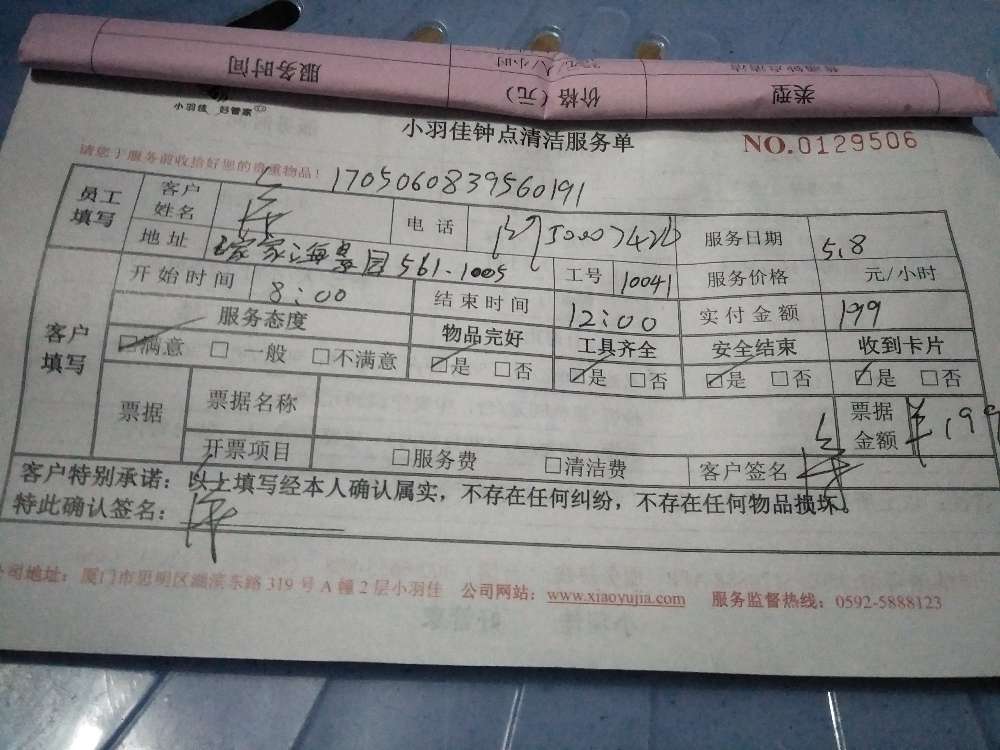 服务时间 价格（元） 类型
小羽佳 好管家
小羽佳钟点清洁服务单 NO.0129506
请您于服务前收拾好您的贵重物品！
1705060839560191
员工填写 客户姓名 电话 服务日期 5.8
地址 海景园561-1005 工号 10041 服务价格 元/小时
客户填写 开始时间 8:00 结束时间 12:00 实付金额 199
服务态度 物品完好 工具齐全 安全结束 收到卡片
☑满意 □一般 □不满意 ☑是 □否 ☑是 □否 ☑是 □否 ☑是 □否
票据 票据名称 票据金额 ¥199
开票项目 □服务费 □清洁费 客户签名
客户特别承诺：以上填写经本人确认属实，不存在任何纠纷，不存在任何物品损坏。
特此确认签名：
公司地址：厦门市思明区湖滨东路319号A幢2层小羽佳 公司网站：www.xiaoyujia.com 服务监督热线：0592-5888123